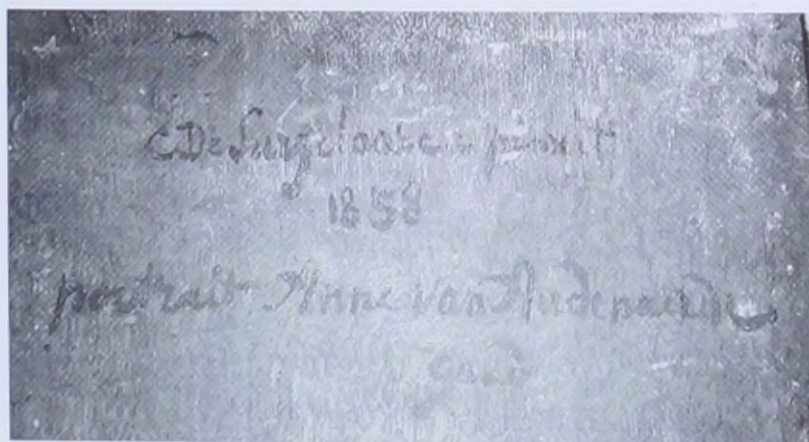 C De Surgeloose pinxit
1858
portrait Anne van Audenaerde